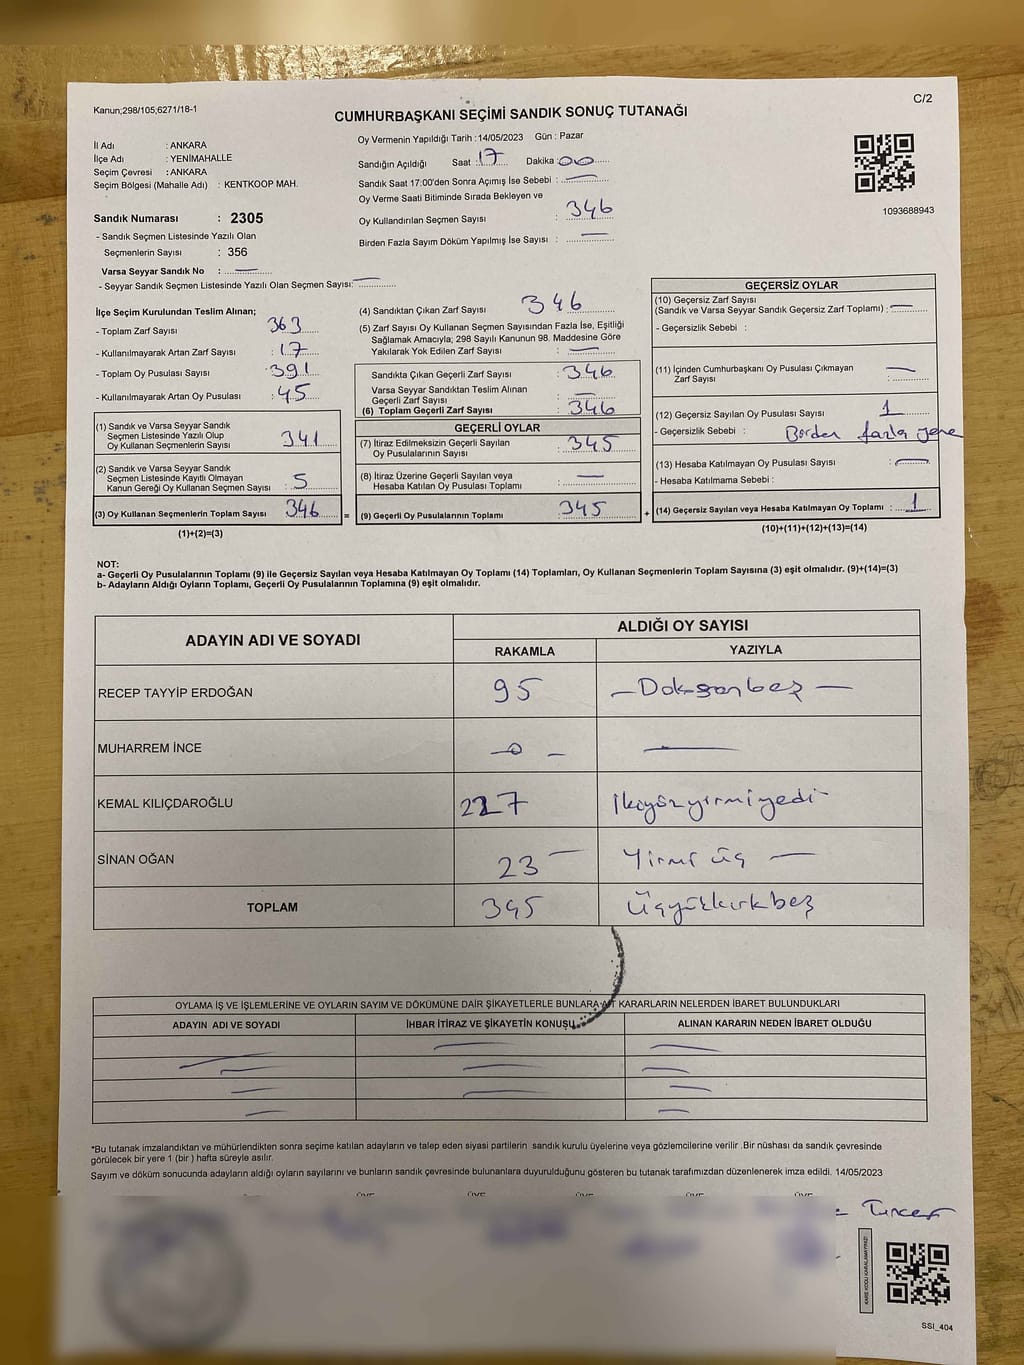 Kanun;298/105;6271/18-1
C/2
CUMHURBAŞKANI SEÇİMİ SANDIK SONUÇ TUTANAĞI
İl Adı : ANKARA
İlçe Adı : YENİMAHALLE
Seçim Çevresi : ANKARA
Seçim Bölgesi (Mahalle Adı) : KENTKOOP MAH.
Sandık Numarası : 2305
- Sandık Seçmen Listesinde Yazılı Olan
Seçmenlerin Sayısı : 356
Varsa Seyyar Sandık No : —
- Seyyar Sandık Seçmen Listesinde Yazılı Olan Seçmen Sayısı: —
Oy Vermenin Yapıldığı Tarih : 14/05/2023 Gün : Pazar
Sandığın Açıldığı Saat : 17 Dakika : 00
Sandık Saat 17:00'den Sonra Açımış İse Sebebi : —
Oy Verme Saati Bitiminde Sırada Bekleyen ve
Oy Kullandırılan Seçmen Sayısı : 346
Birden Fazla Sayım Döküm Yapılmış İse Sayısı : —
1093688943
İlçe Seçim Kurulundan Teslim Alınan;
- Toplam Zarf Sayısı : 363
- Kullanılmayarak Artan Zarf Sayısı : 17
- Toplam Oy Pusulası Sayısı : 391
- Kullanılmayarak Artan Oy Pusulası : 45
(1) Sandık ve Varsa Seyyar Sandık
Seçmen Listesinde Yazılı Olup
Oy Kullanan Seçmenlerin Sayısı : 341
(2) Sandık ve Varsa Seyyar Sandık
Seçmen Listesinde Kayıtlı Olmayan
Kanun Gereği Oy Kullanan Seçmen Sayısı : 5
(3) Oy Kullanan Seçmenlerin Toplam Sayısı : 346 =
(1)+(2)=(3)
(4) Sandıktan Çıkan Zarf Sayısı : 346
(5) Zarf Sayısı Oy Kullanan Seçmen Sayısından Fazla İse, Eşitliği
Sağlamak Amacıyla; 298 Sayılı Kanunun 98. Maddesine Göre
Yakılarak Yok Edilen Zarf Sayısı : —
Sandıkta Çıkan Geçerli Zarf Sayısı : 346
Varsa Seyyar Sandıktan Teslim Alınan
Geçerli Zarf Sayısı : —
(6) Toplam Geçerli Zarf Sayısı : 346
GEÇERLİ OYLAR
(7) İtiraz Edilmeksizin Geçerli Sayılan
Oy Pusulalarının Sayısı : 345
(8) İtiraz Üzerine Geçerli Sayılan veya
Hesaba Katılan Oy Pusulası Toplamı : —
(9) Geçerli Oy Pusulalarının Toplamı : 345 +
GEÇERSİZ OYLAR
(10) Geçersiz Zarf Sayısı
(Sandık ve Varsa Seyyar Sandık Geçersiz Zarf Toplamı) : —
- Geçersizlik Sebebi :
(11) İçinden Cumhurbaşkanı Oy Pusulası Çıkmayan
Zarf Sayısı : —
(12) Geçersiz Sayılan Oy Pusulası Sayısı : 1
- Geçersizlik Sebebi : Birden fazla
(13) Hesaba Katılmayan Oy Pusulası Sayısı : —
- Hesaba Katılmama Sebebi :
(14) Geçersiz Sayılan veya Hesaba Katılmayan Oy Toplamı : 1
(10)+(11)+(12)+(13)=(14)
NOT:
a- Geçerli Oy Pusulalarının Toplamı (9) ile Geçersiz Sayılan veya Hesaba Katılmayan Oy Toplamı (14) Toplamları, Oy Kullanan Seçmenlerin Toplam Sayısına (3) eşit olmalıdır. (9)+(14)=(3)
b- Adayların Aldığı Oyların Toplamı, Geçerli Oy Pusulalarının Toplamına (9) eşit olmalıdır.
ADAYIN ADI VE SOYADI ALDIĞI OY SAYISI
RAKAMLA YAZIYLA
RECEP TAYYİP ERDOĞAN 95 — Doksanbeş —
MUHARREM İNCE — 0 — —
KEMAL KILIÇDAROĞLU 227 İkiyüzyirmiyedi
SİNAN OĞAN 23 — Yirmi üç —
TOPLAM 345 Üçyüzkırkbeş
OYLAMA İŞ VE İŞLEMLERİNE VE OYLARIN SAYIM VE DÖKÜMÜNE DAİR ŞİKAYETLERLE BUNLARA AİT KARARLARIN NELERDEN İBARET BULUNDUKLARI
ADAYIN ADI VE SOYADI İHBAR İTİRAZ VE ŞİKAYETİN KONUSU ALINAN KARARIN NEDEN İBARET OLDUĞU
*Bu tutanak imzalandıktan ve mühürlendikten sonra seçime katılan adayların ve talep eden siyasi partilerin sandık kurulu üyelerine veya gözlemcilerine verilir .Bir nüshası da sandık çevresinde
görülecek bir yere 1 (bir ) hafta süreyle asılır.
Sayım ve döküm sonucunda adayların aldığı oyların sayılarını ve bunların sandık çevresinde bulunanlara duyurulduğunu gösteren bu tutanak tarafımızdan düzenlenerek imza edildi. 14/05/2023
SSI_404